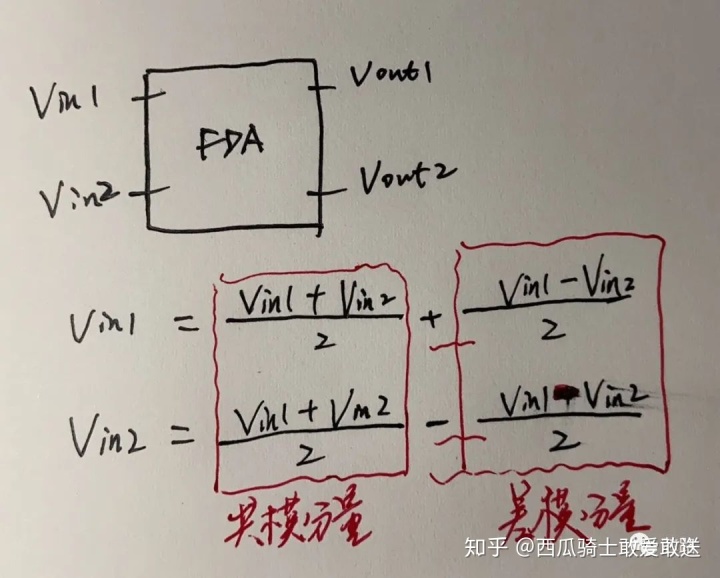 Vin1 Vout1
FDA
Vin2 Vout2
Vin1 = (Vin1 + Vin2)/2 + (Vin1 - Vin2)/2
Vin2 = (Vin1 + Vin2)/2 - (Vin1 - Vin2)/2
共模分量 差模分量
知乎 @西瓜骑士敢爱敢送